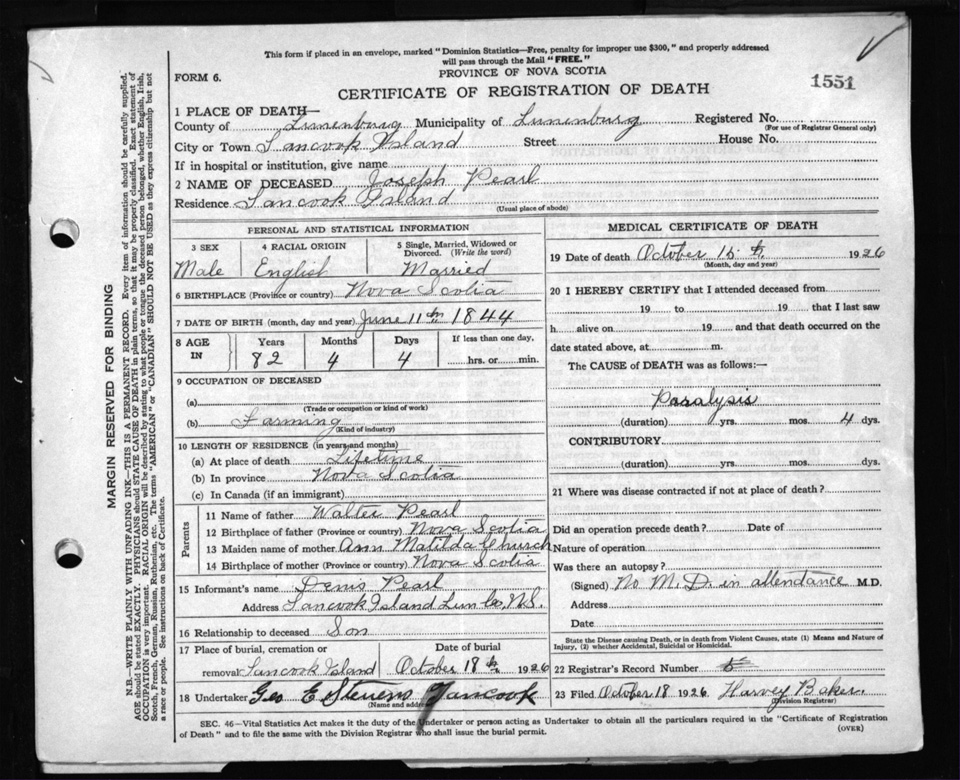 This form if placed in an envelope, marked "Dominion Statistics—Free, penalty for improper use $300," and properly addressed
will pass through the Mail "FREE."
FORM 6.
PROVINCE OF NOVA SCOTIA
1551
CERTIFICATE OF REGISTRATION OF DEATH
1 PLACE OF DEATH—
County of Lunenburg Municipality of Lunenburg Registered No.
(For use of Registrar General only)
City or Town Tancook Island Street House No.
If in hospital or institution, give name
2 NAME OF DECEASED Joseph Pearl
Residence Tancook Island
(Usual place of abode)
PERSONAL AND STATISTICAL INFORMATION
3 SEX 4 RACIAL ORIGIN 5 Single, Married, Widowed or Divorced. (Write the word)
Male English Married
6 BIRTHPLACE (Province or country) Nova Scotia
7 DATE OF BIRTH (month, day and year) June 11th 1844
8 AGE IN Years Months Days If less than one day,
82 4 4 hrs. or min.
9 OCCUPATION OF DECEASED
(a)
(Trade or occupation or kind of work)
(b) Farming
(Kind of industry)
10 LENGTH OF RESIDENCE (in years and months)
(a) At place of death Lifetime
(b) In province Nova Scotia
(c) In Canada (if an immigrant)
Parents
11 Name of father Walter Pearl
12 Birthplace of father (Province or country) Nova Scotia
13 Maiden name of mother Ann Matilda Church
14 Birthplace of mother (Province or country) Nova Scotia
15 Informant's name Denis Pearl
Address Tancook Island Lun Co, N.S.
16 Relationship to deceased Son
17 Place of burial, cremation or Date of burial
removal Tancook Island October 18th 1926
18 Undertaker Geo E Stevens Tancook
(Name and address)
MEDICAL CERTIFICATE OF DEATH
19 Date of death October 15th 1926
(Month, day and year)
20 I HEREBY CERTIFY that I attended deceased from
19 to 19 that I last saw
h alive on 19 and that death occurred on the
date stated above, at m.
The CAUSE of DEATH was as follows:—
Paralysis
(duration) yrs. mos. 4 dys.
CONTRIBUTORY
(duration) yrs. mos. dys.
21 Where was disease contracted if not at place of death?
Did an operation precede death? Date of
Nature of operation
Was there an autopsy?
(Signed) No M.D. in attendance M.D.
Address
Date
State the Disease causing Death, or in death from Violent Causes, state (1) Means and Nature of
Injury, (2) whether Accidental, Suicidal or Homicidal.
22 Registrar's Record Number 5
23 Filed October 18 1926 Harvey Baker.
(Division Registrar)
SEC. 46—Vital Statistics Act makes it the duty of the Undertaker or person acting as Undertaker to obtain all the particulars required in the "Certificate of Registration
of Death" and to file the same with the Division Registrar who shall issue the burial permit.
(OVER)
MARGIN RESERVED FOR BINDING
N.B.—WRITE PLAINLY WITH UNFADING INK—THIS IS A PERMANENT RECORD. Every item of information should be carefully supplied.
AGE should be stated EXACTLY. PHYSICIANS should STATE CAUSE OF DEATH in plain terms, so that it may be properly classified. Exact statement of
OCCUPATION is very important. RACIAL ORIGIN will be described by stating to what people or tongue the deceased person belonged, whether English, Irish,
Scotch, French, German, Russian, Ruthenian, etc. The terms "AMERICAN" or "CANADIAN" SHOULD NOT BE USED as they express citizenship but not
a race or people. See instructions on back of Certificate.